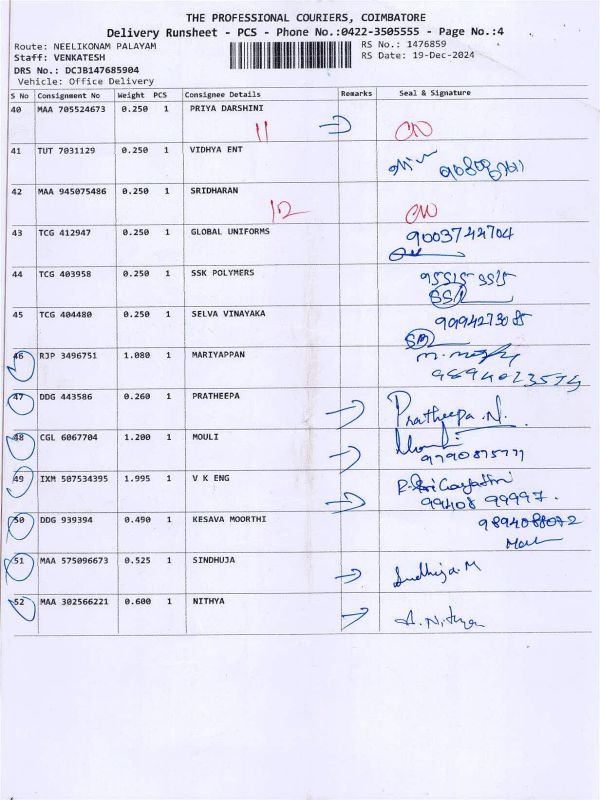 THE PROFESSIONAL COURIERS, COIMBATORE
Delivery Runsheet - PCS - Phone No.:0422-3505555 - Page No.:4
Route: NEELIKONAM PALAYAM RS No.: 1476859
Staff: VENKATESH RS Date: 19-Dec-2024
DRS No.: DCJB147685904
Vehicle: Office Delivery
S No Consignment No Weight PCS Consignee Details Remarks Seal & Signature
40 MAA 705524673 0.250 1 PRIYA DARSHINI
11
41 TUT 7031129 0.250 1 VIDHYA ENT
42 MAA 945075486 0.250 1 SRIDHARAN
12
43 TCG 412947 0.250 1 GLOBAL UNIFORMS 9003744704
44 TCG 403958 0.250 1 SSK POLYMERS
45 TCG 404480 0.250 1 SELVA VINAYAKA
46 RJP 3496751 1.080 1 MARIYAPPAN
47 DDG 443586 0.260 1 PRATHEEPA Pratheepa.N.
48 CGL 6067704 1.200 1 MOULI
9790875777
49 IXM 507534395 1.995 1 V K ENG
99408 99997.
50 DDG 939394 0.490 1 KESAVA MOORTHI
51 MAA 575096673 0.525 1 SINDHUJA Sindhuja.M
52 MAA 302566221 0.600 1 NITHYA A. Nithya